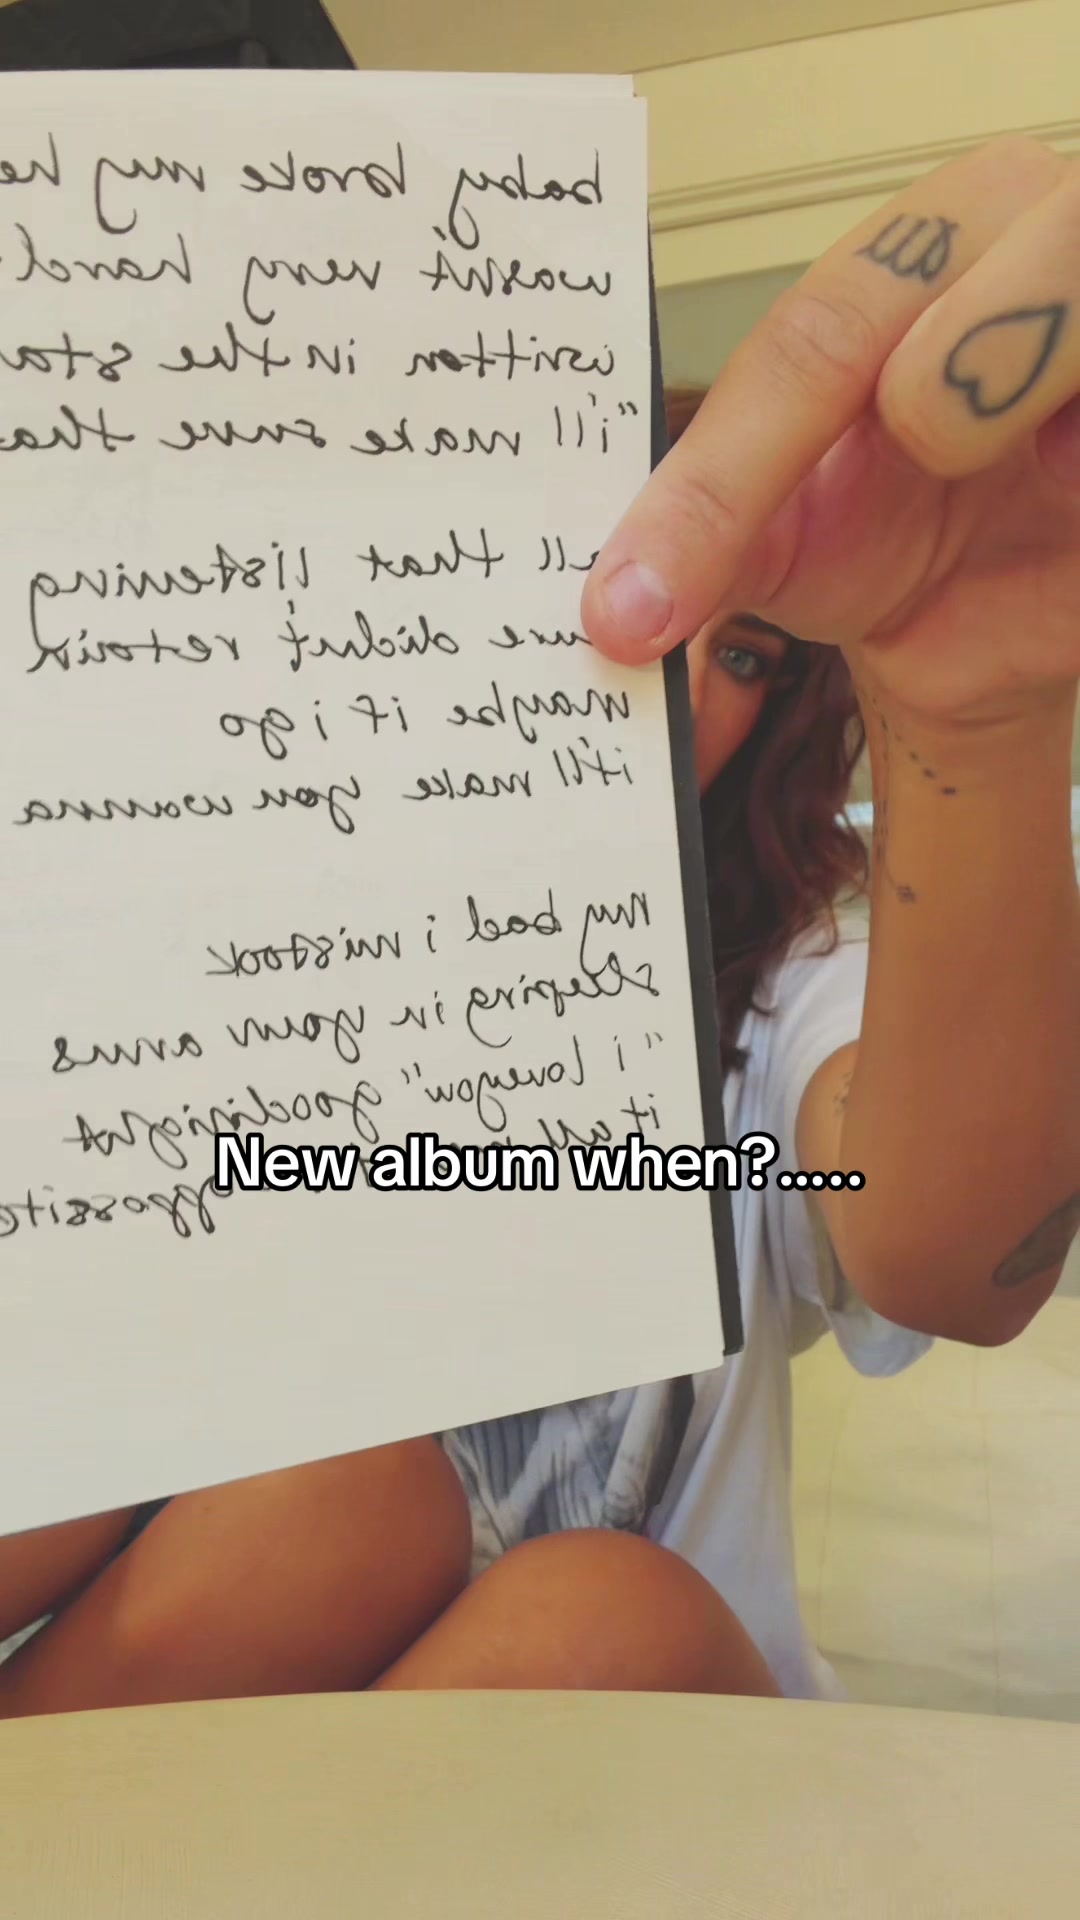 baby broke my he
wasn't very hard
written in the sta
"i'll make sure tha
all that listening
sure didn't retain
maybe if i go
it'll make you wanna
my bad i mistook
sleeping in your arms
"i love you" goodnight
it all
opposite
New album when?.....